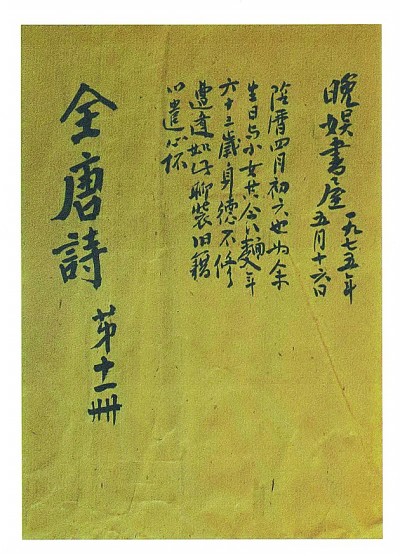 晚娱書屋 一九七五年
五月十六日
陰曆四月初六也为余
生日与小女共食麵年
六十三歲身德不修
遭逢如此聊裝旧籍
以遣心怀
全唐詩 第十一冊